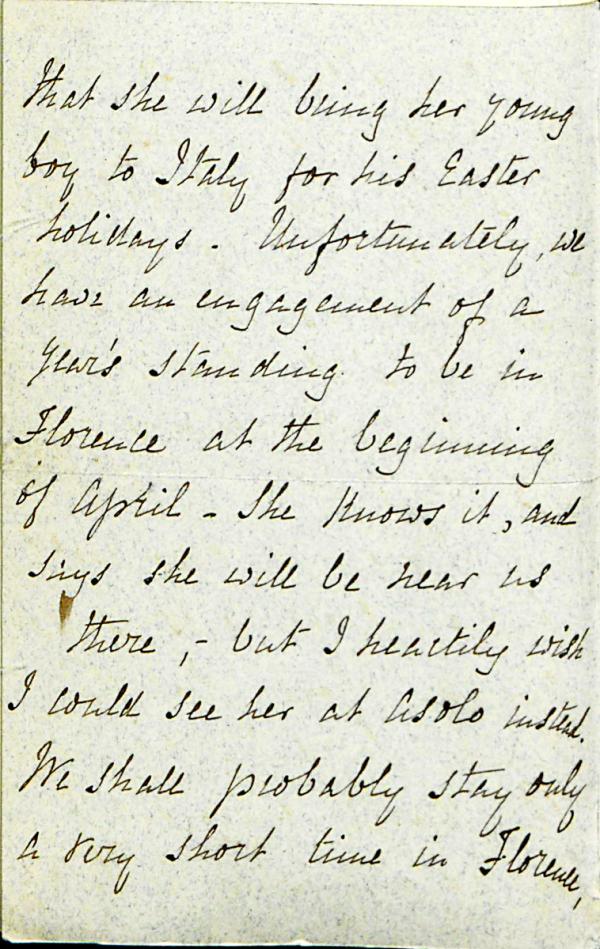 that she will bring her young
boy to Italy for his Easter
holidays. Unfortunately, we
have an engagement of a
year's standing to be in
Florence at the beginning
of April - She knows it, and
says she will be near us
there, - but I heartily wish
I could see her at Asolo instead.
We shall probably stay only
a very short time in Florence,